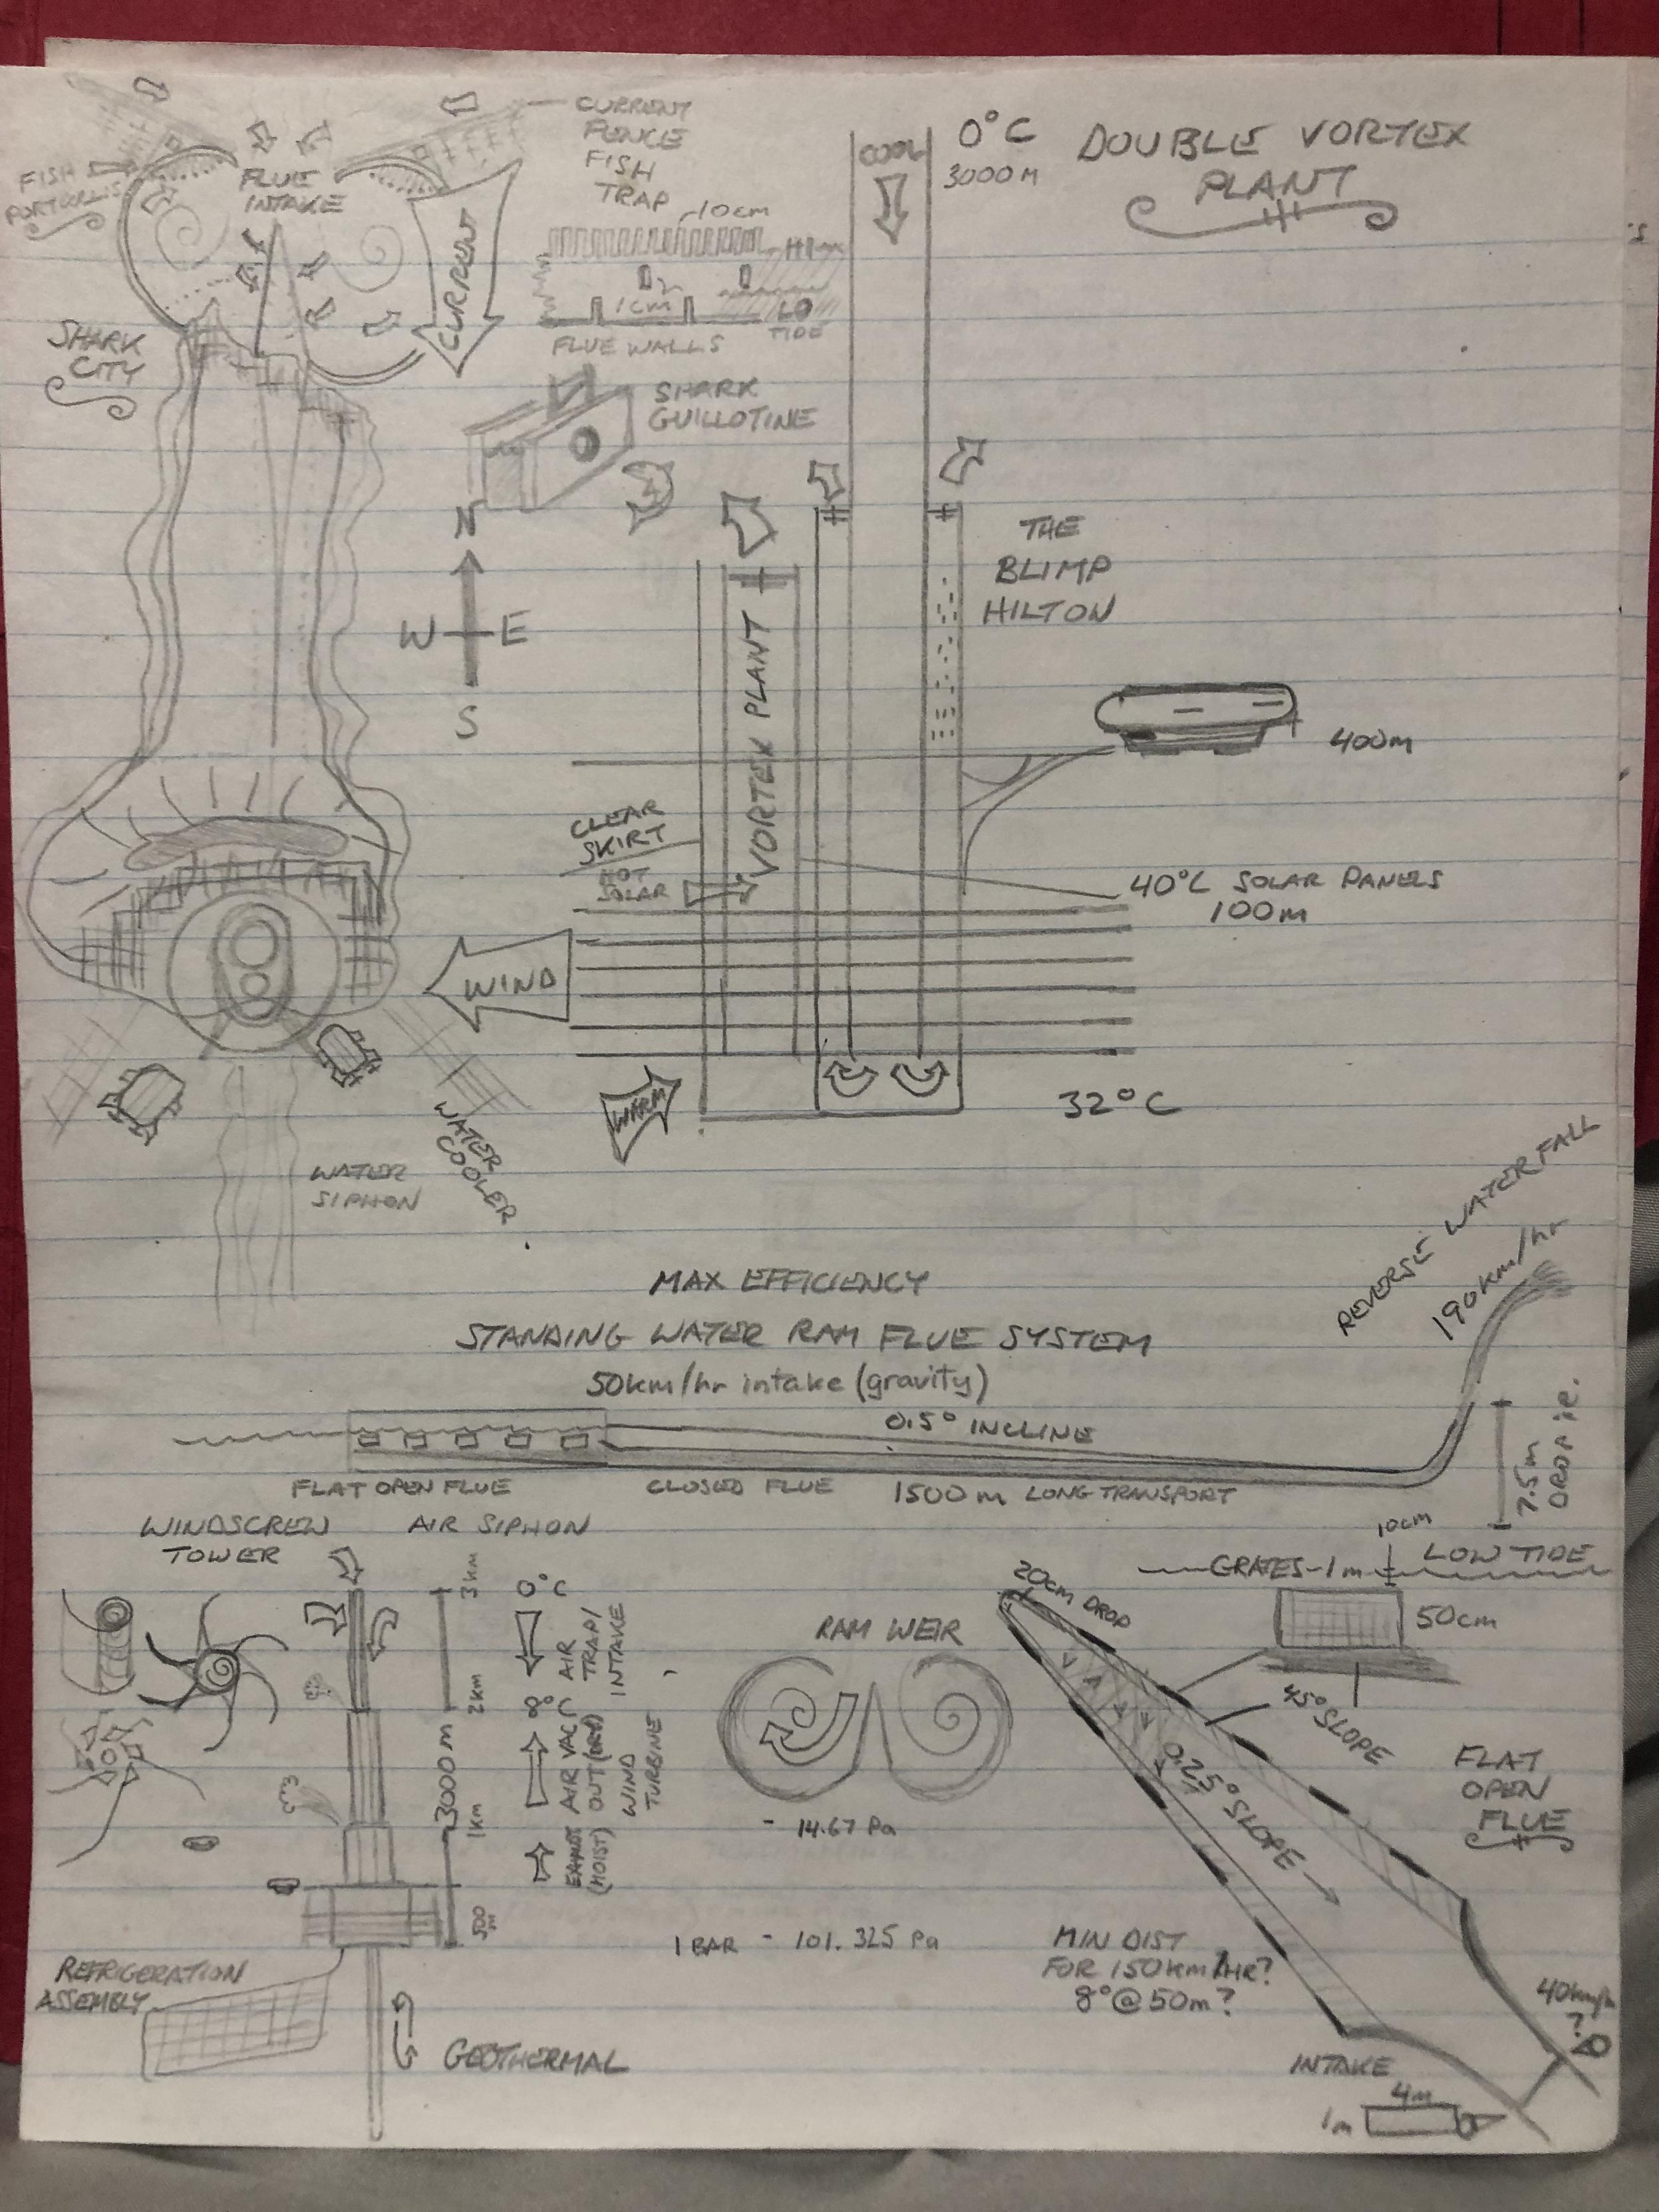 CURRENT
FENCE
FISH
TRAP
FISH
PORTCULLIS
FLUE
INTAKE
CURRENT
10cm
HI
1cm
LO
TIDE
FLUE WALLS
COOL
0°C
3000M
DOUBLE VORTEX
PLANT
SHARK
CITY
SHARK
GUILLOTINE
N
W E
S
THE
BLIMP
HILTON
VORTEX PLANT
400m
CLEAR
SKIRT
HOT
SOLAR
40°C SOLAR PANELS
100m
WIND
WARM
32°C
WATER
COOLER
WATER
SIPHON
MAX EFFICIENCY
STANDING WATER RAM FLUE SYSTEM
50km/hr intake (gravity)
REVERSE WATERFALL
190km/hr
0.5° INCLINE
FLAT OPEN FLUE
CLOSED FLUE
1500m LONG TRANSPORT
7.5m
WINDSCREW
TOWER
AIR SIPHON
3km
2km
3000m
1km
500
m
0°C
AIR
TRAP/
INTAKE
8°C
AIR VAC
OUT (DRY)
WIND
TURBINE
EXHAUST
(MOIST)
REFRIGERATION
ASSEMBLY
GEOTHERMAL
RAM WEIR
- 14.67 Pa
1 BAR - 101.325 Pa
10cm
GRATES-1m
LOW TIDE
20cm DROP
50cm
45° SLOPE
0.25° SLOPE
FLAT
OPEN
FLUE
MIN DIST
FOR 150km/HR?
8°@50m?
40km/h
?
INTAKE
4m
1m